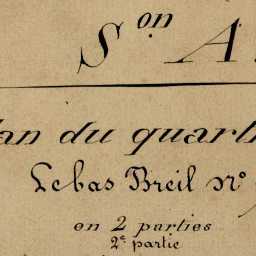 Son A
lan du quart
Lebas Breil nº
en 2 parties
2e partie